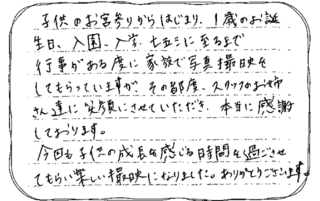 子供のお宮参りからはじまり、1歳のお誕
生日、入園、入学、七五三に至るまで
行事がある度に家族で写真撮映を
してもらっていますが、その都度、スタッフのお姉
さん達に笑顔にさせていただき、本当に感謝
しております。
今回も子供の成長を感じる時間を過ごさせ
てもらい楽しい撮映になりました。ありがとうございます。